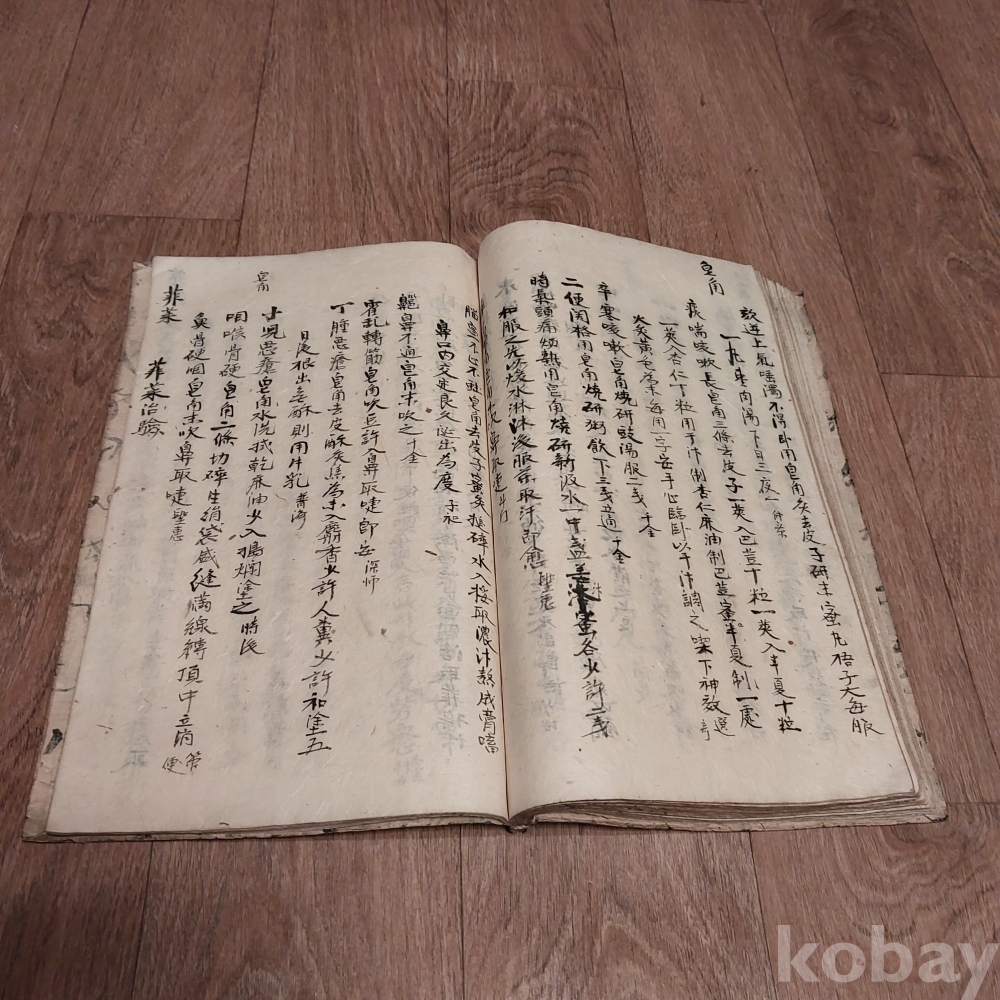 皂角
欬逆上氣唾濁不得臥用皂角炙去皮子研末蜜丸梧子大每服
一丸棗膏湯下日三夜一 仲景
痰喘咳嗽長皂角三條去皮子一莢入巴豆十粒一莢入半夏十粒
一莢杏仁十粒用干汁制杏仁麻油制巴豆蜜半夏制一處
火炙黃毛為末每用一字安手心臨臥以干汁調之喫下神效 選奇
卒寒咳嗽皂角燒研豉湯服二戔 千金
二便関格用皂角燒研粥飲下三戔立通 千金
時氣頭痛煩熱用皂角燒研新汲水一中盞 蜜各少許二戔
和服之先以煖水淋沐後服藥取汗即愈 聖惠
皂角去皮子蜜炙搥碎水入挼取濃汁熬成膏嗜
鼻口內交定良久涎出為度 子和
齆鼻不通皂角末吹之 千金
霍乱轉筋皂角吹豆許入鼻取嚏即安 深師
丁腫惡瘡皂角去皮酥炙焦為末入麝香少許人糞少許和塗五
日後根出
小児惡瘡皂角水洗拭乾麻油少入搗爛塗之 時後
咽喉骨硬皂角二條切碎生絹袋盛縫滿線縛頂中立消 簡便
魚骨硬咽皂角末吹鼻取嚏 聖惠
皂角
菲菜
菲菜治驗
kobay